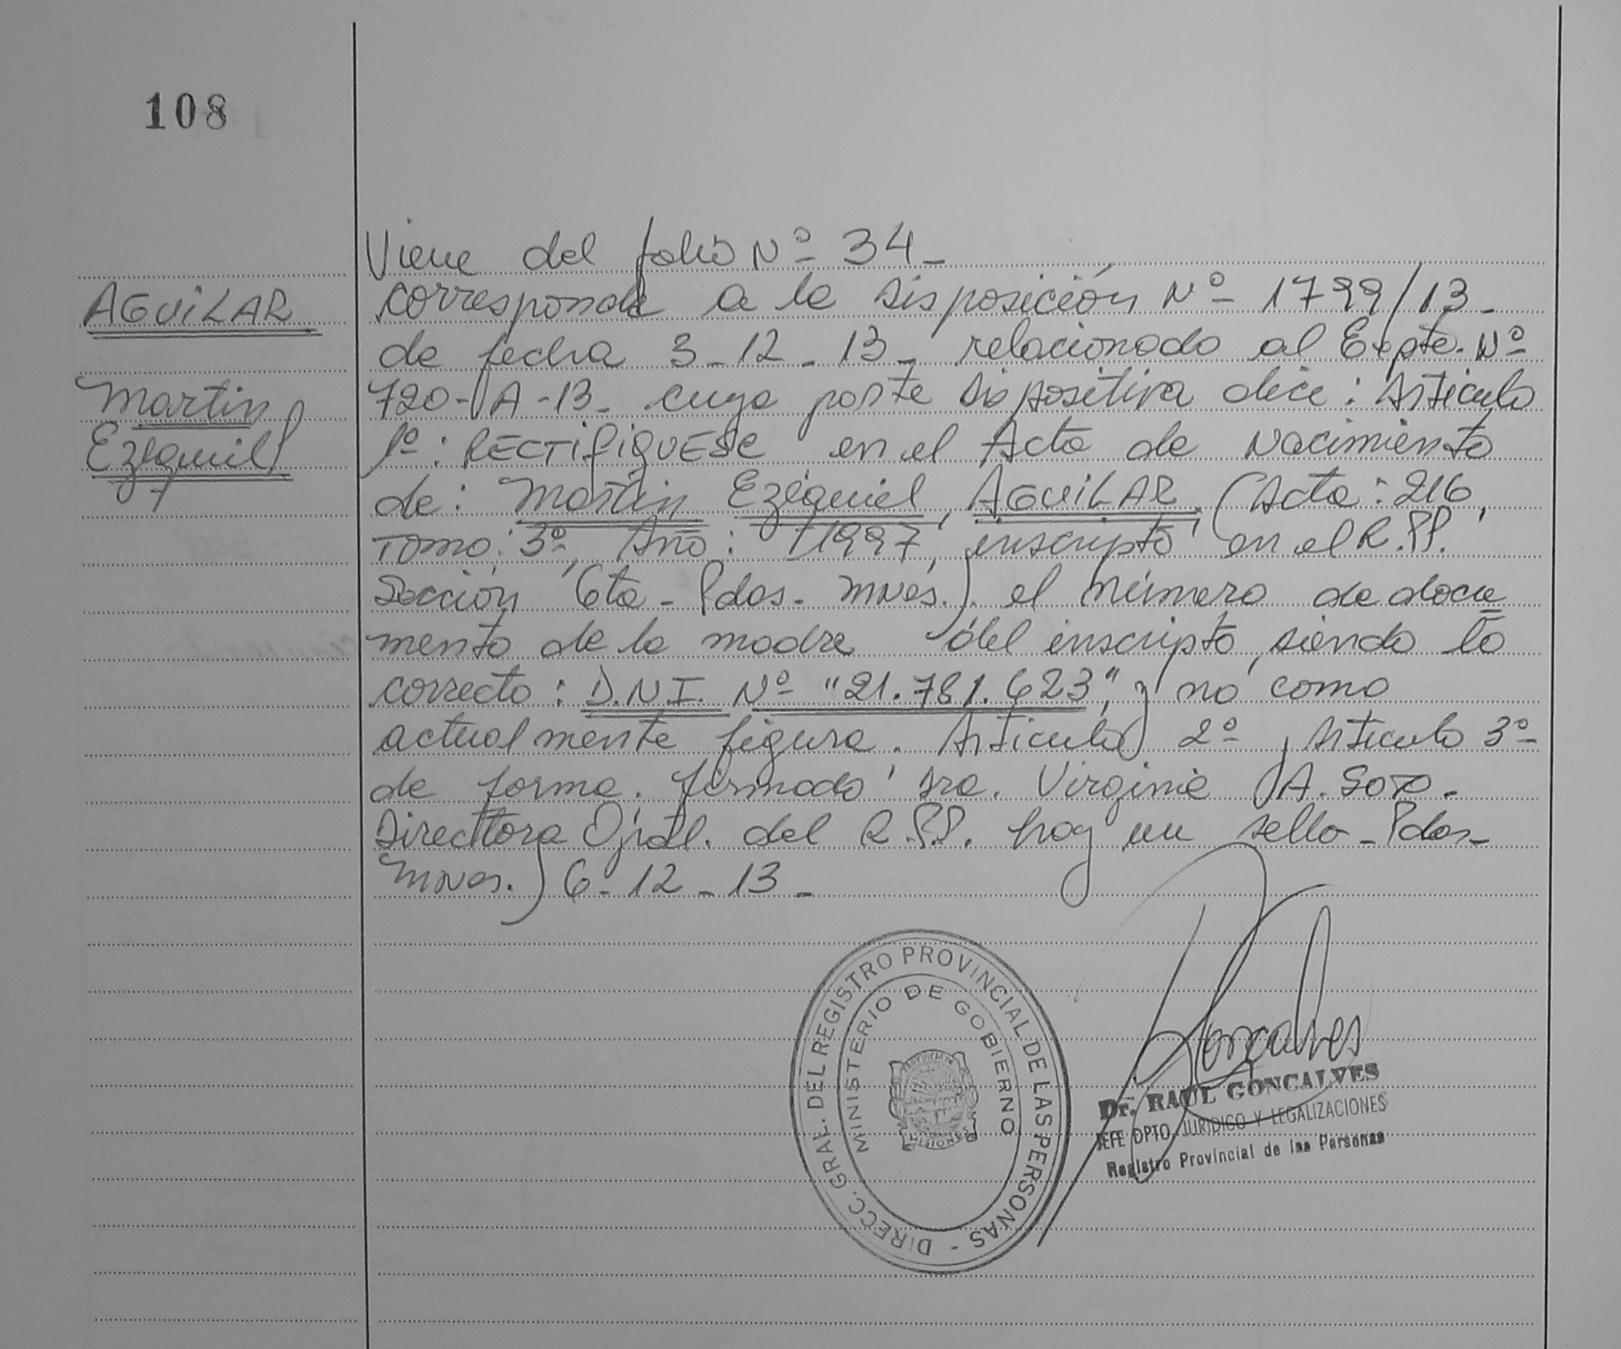 108
AGUILAR
Martin
Ezequiel
Viene del folio Nº 34_
corresponde a la disposición Nº 1799/13_
de fecha 3_12_13_ relacionado al Expte. Nº
720-A-13_ cuya parte dispositiva dice: Artículo
1º: RECTIFIQUESE en el Acta de Nacimiento
de: Martin Ezequiel, AGUILAR (Acta: 216,
Tomo: 3º, Año: 1997, inscripto en el R.PP.
Sección 6ta_ Pdas. Mnes.). el número de docu
mento de la madre del inscripto, siendo lo
correcto: D.N.I. Nº "21.781.623", y no como
actualmente figura. Artículo 2º, Artículo 3º
de forma. firmado Sra. Virginia A. Soto.
Directora Gral. del R.PP. hay un sello_Pdas_
Mnes. 6_12_13_
DIRECC. GRAL. DEL REGISTRO PROVINCIAL DE LAS PERSONAS -
MINISTERIO DE GOBIERNO
Goncalves
Dr. RAUL GONCALVES
JEFE DPTO. JURIDICO Y LEGALIZACIONES
Registro Provincial de las Personas